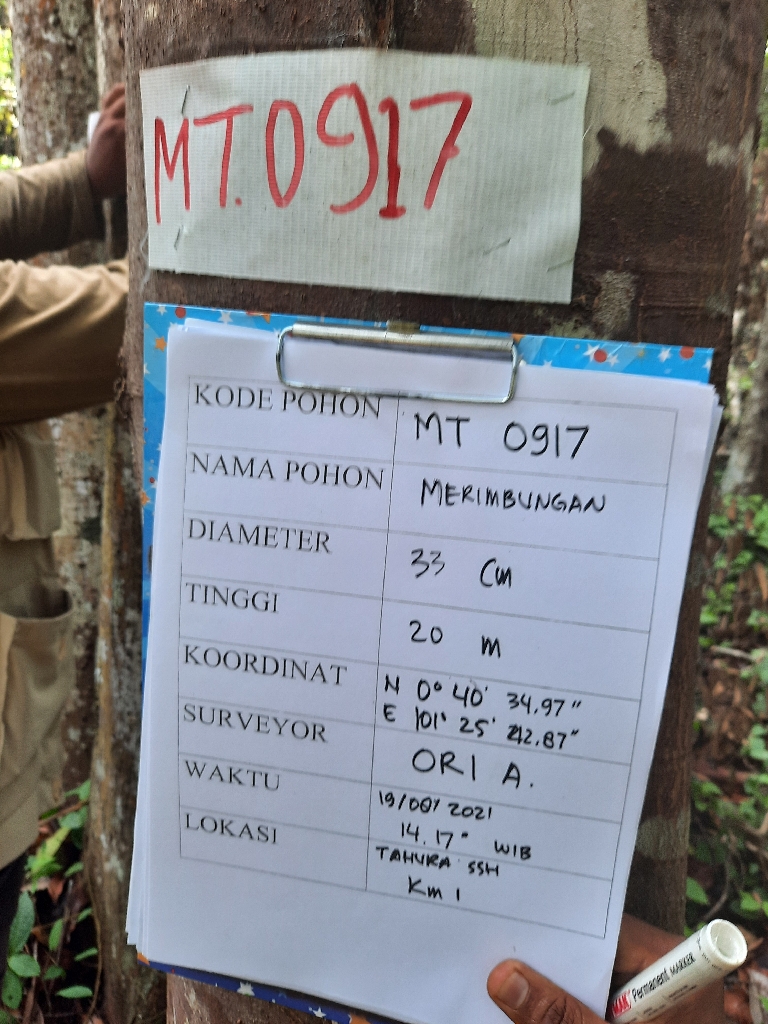 MT.0917
KODE POHON
MT 0917
NAMA POHON
MERIMBUNGAN
DIAMETER
33 Cm
TINGGI
20 m
KOORDINAT
N 0° 40' 34.97"
E 101° 25' 42.87"
SURVEYOR
ORI A.
WAKTU
2021
14.17" WIB
LOKASI
TAHURA SSH
Km 1
Permanent MARKER